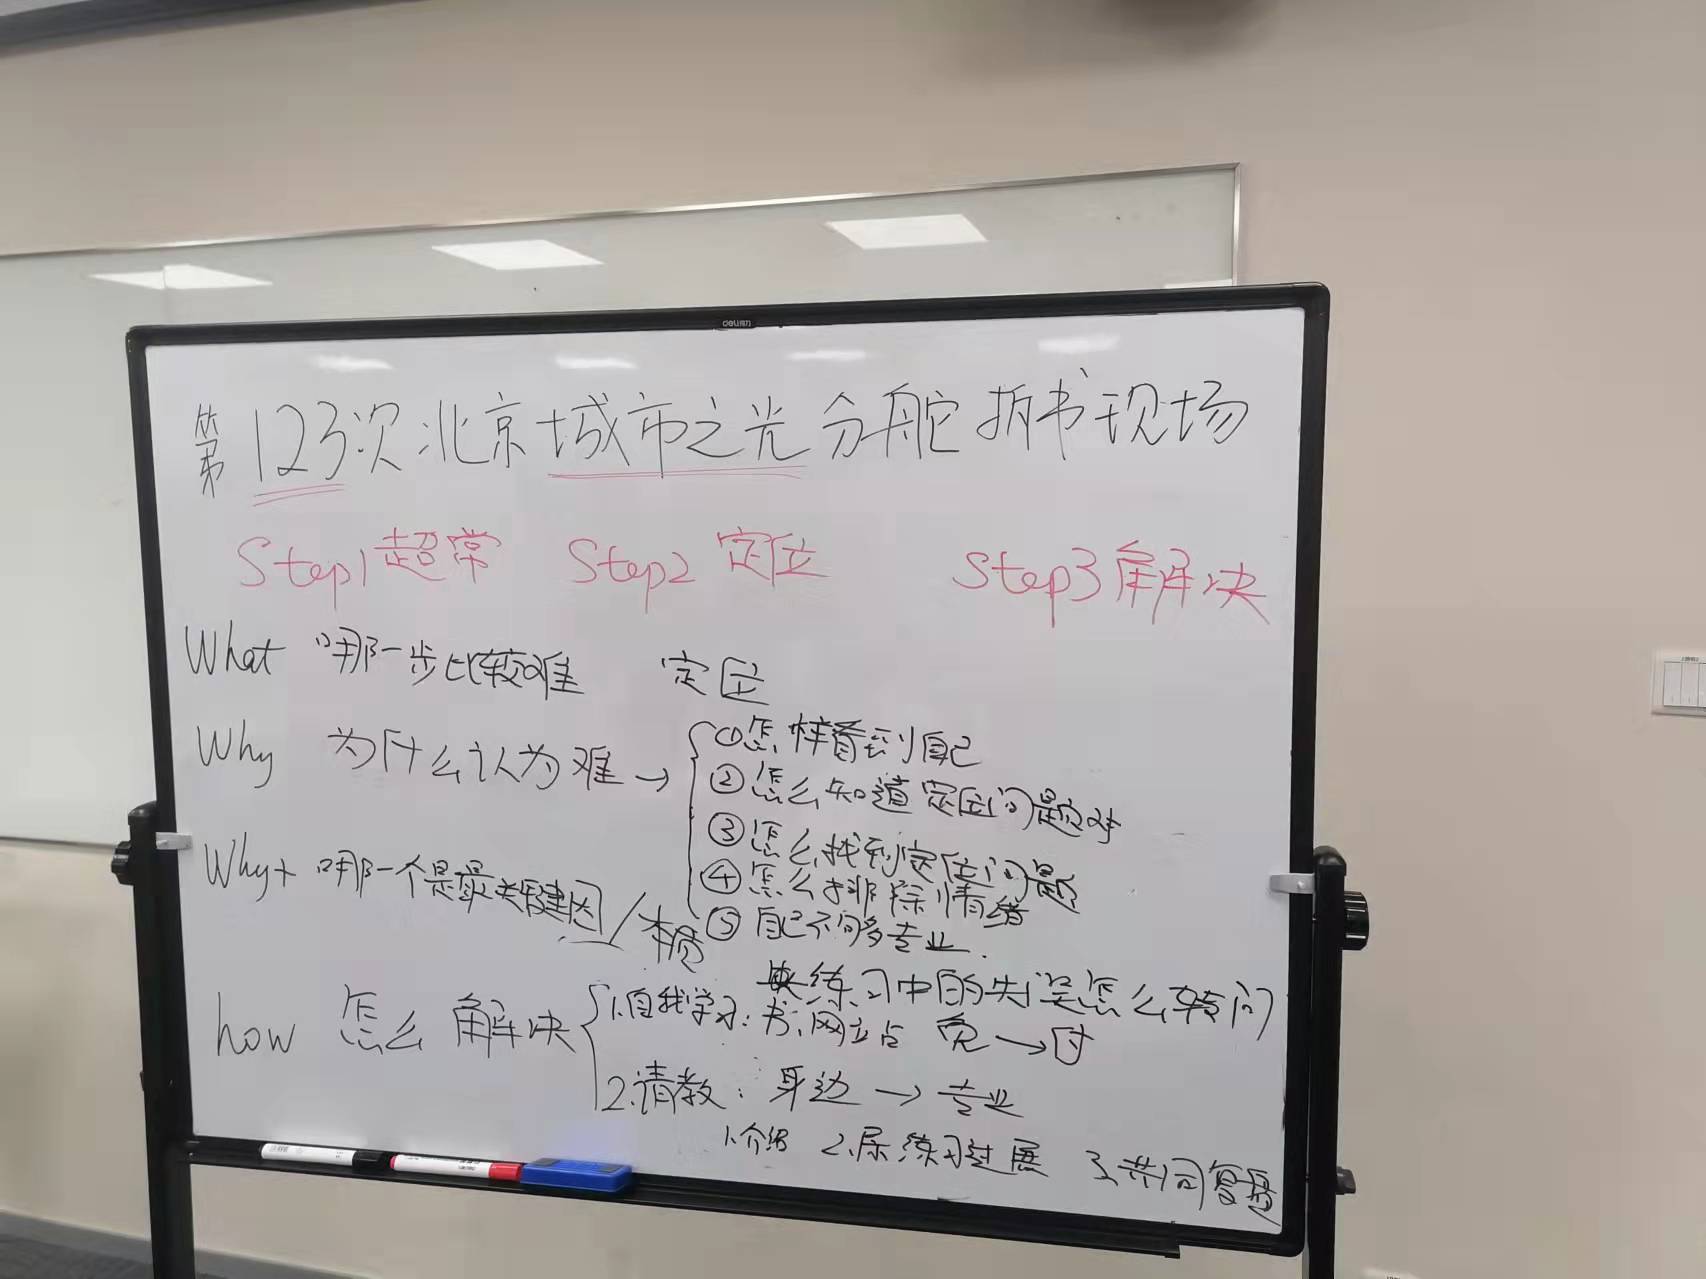 deli得力
第123次北京城市之光分舵拆书现场
Step1超常 Step2 定位 Step3解决
What 哪一步比较难 定位
Why 为什么认为难→
①怎样看到自己
②怎么知道定位问题对
③怎么找到定位问题
④怎么排除情绪
⑤自己不够专业.
Why+ 哪一个是最关键因/本质
练习中的失误怎么转问
how 怎么解决
1.自我学习:书、网站 免→付
2.请教:身边→专业
1.介绍 2. 练习进展 3.共同复盘